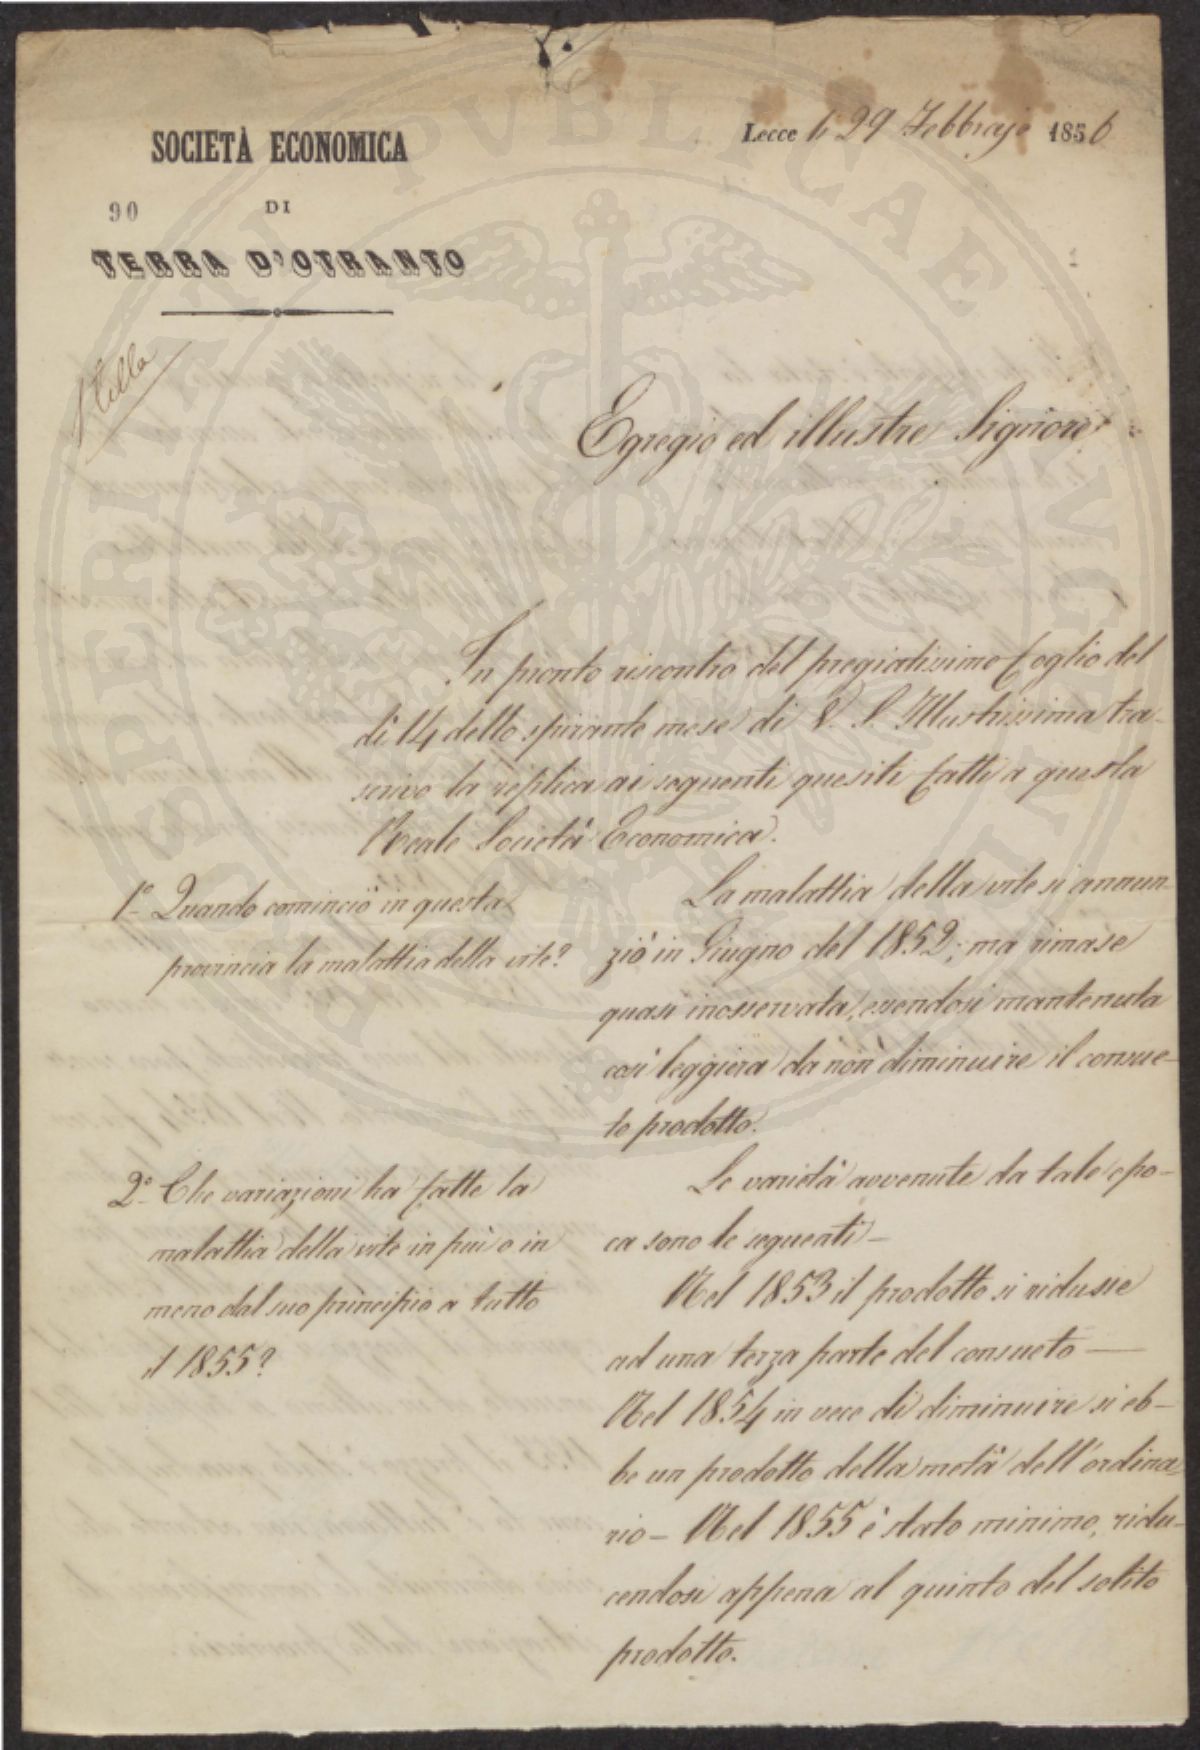 SOCIETÀ ECONOMICA
90 DI
TERRA D'OTRANTO
Lecce li 29 Febbrajo 1856
Stella
Egregio ed illustre Signore
In pronto riscontro del pregiatissimo foglio del
dì 14 dello spirante mese di V. S. Illustrissima tra-
scrivo la replica ai seguenti quesiti fatti a questa
Reale Società Economica.
1°- Quando cominciò in questa
provincia la malattia della vite?
La malattia della vite si annun-
ziò in Giugno del 1852; ma rimase
quasi inosservata, essendosi mantenuta
così leggiera da non diminuire il consue-
to prodotto.
2°- Che variazioni ha fatte la
malattia della vite in più o in
meno dal suo principio a tutto
il 1855?
Le varietà avvenute da tale epo-
ca sono le seguenti -
Nel 1853 il prodotto si ridusse
ad una terza parte del consueto —
Nel 1854 in vece di diminuire si eb-
be un prodotto della metà dell'ordina-
rio - Nel 1855 è stato minimo, ridu-
cendosi appena al quinto del solito
prodotto.